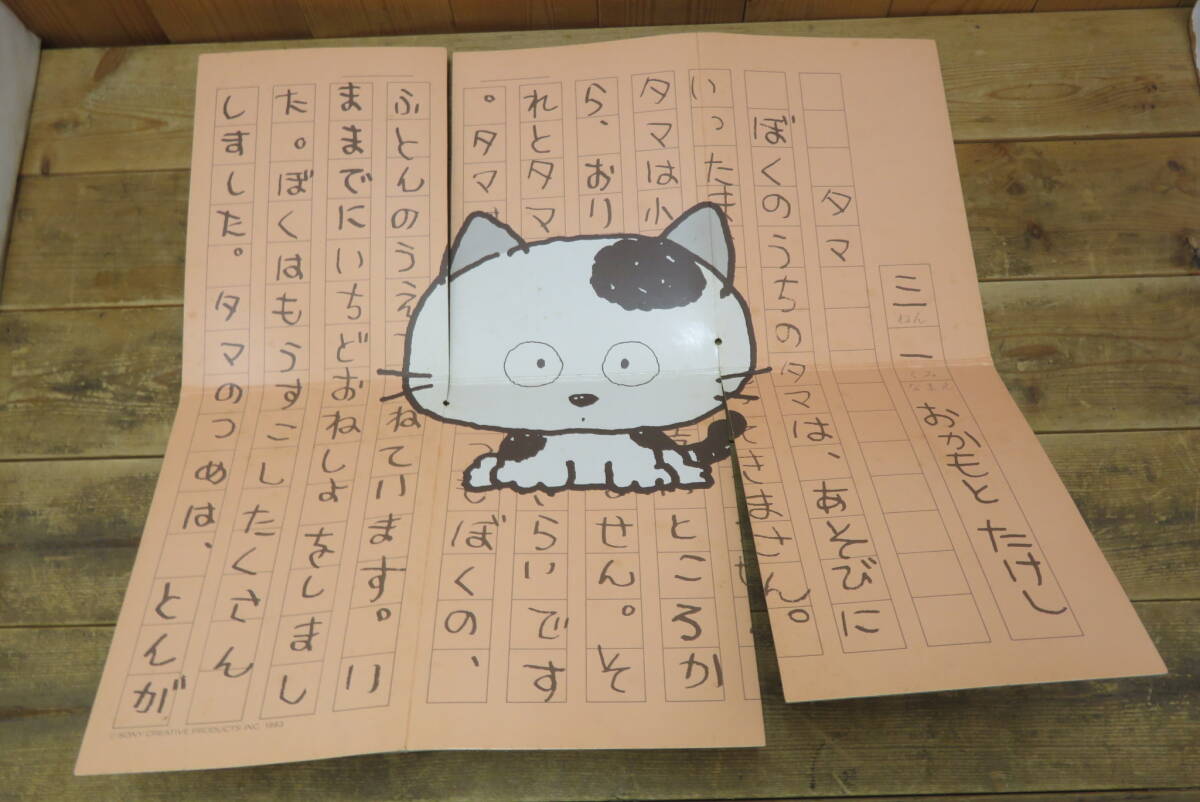 三ねん 一くみ
なまえ おかもと たけし
タマ
ぼくのうちのタマは、あそびに
いったま きまさん。
タマは小 ところか
ら、おり せん。そ
れとタマ らいです
。タマ ぼくの、
ふとんのうえ ねています。い
ままでにいちどおねしょをしまし
た。ぼくはもうすこしたくさん
しすした。タマのつめは、とんが
©SONY CREATIVE PRODUCTS INC. 1983